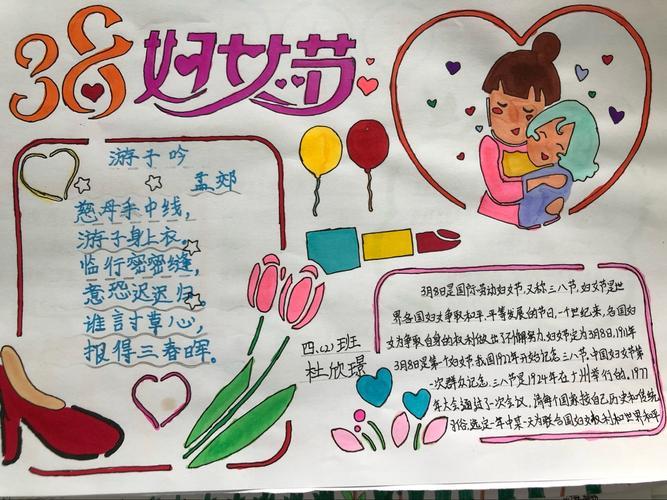 38妇女节
游子吟
孟郊
慈母手中线，
游子身上衣。
临行密密缝，
意恐迟迟归。
谁言寸草心，
报得三春晖。
四、(2)班
杜欣璟
3月8日是国际劳动妇女节，又称三八节，妇女节是世
界各国妇女争取和平、平等发展的节日，一个世纪来，各国妇
女为争取自身的权利做出了不懈努力，妇女节定为3月8日，1911年
3月8日是第一个妇女节，我国1922年开始纪念三八节，中国妇女节第
一次群众纪念，三八节是1924年在广州举行的，1977
年大会通过了一次会议，请每个国家按自己历史和传统
习俗，选定一年中某一天为联合国妇女权利和世界和平